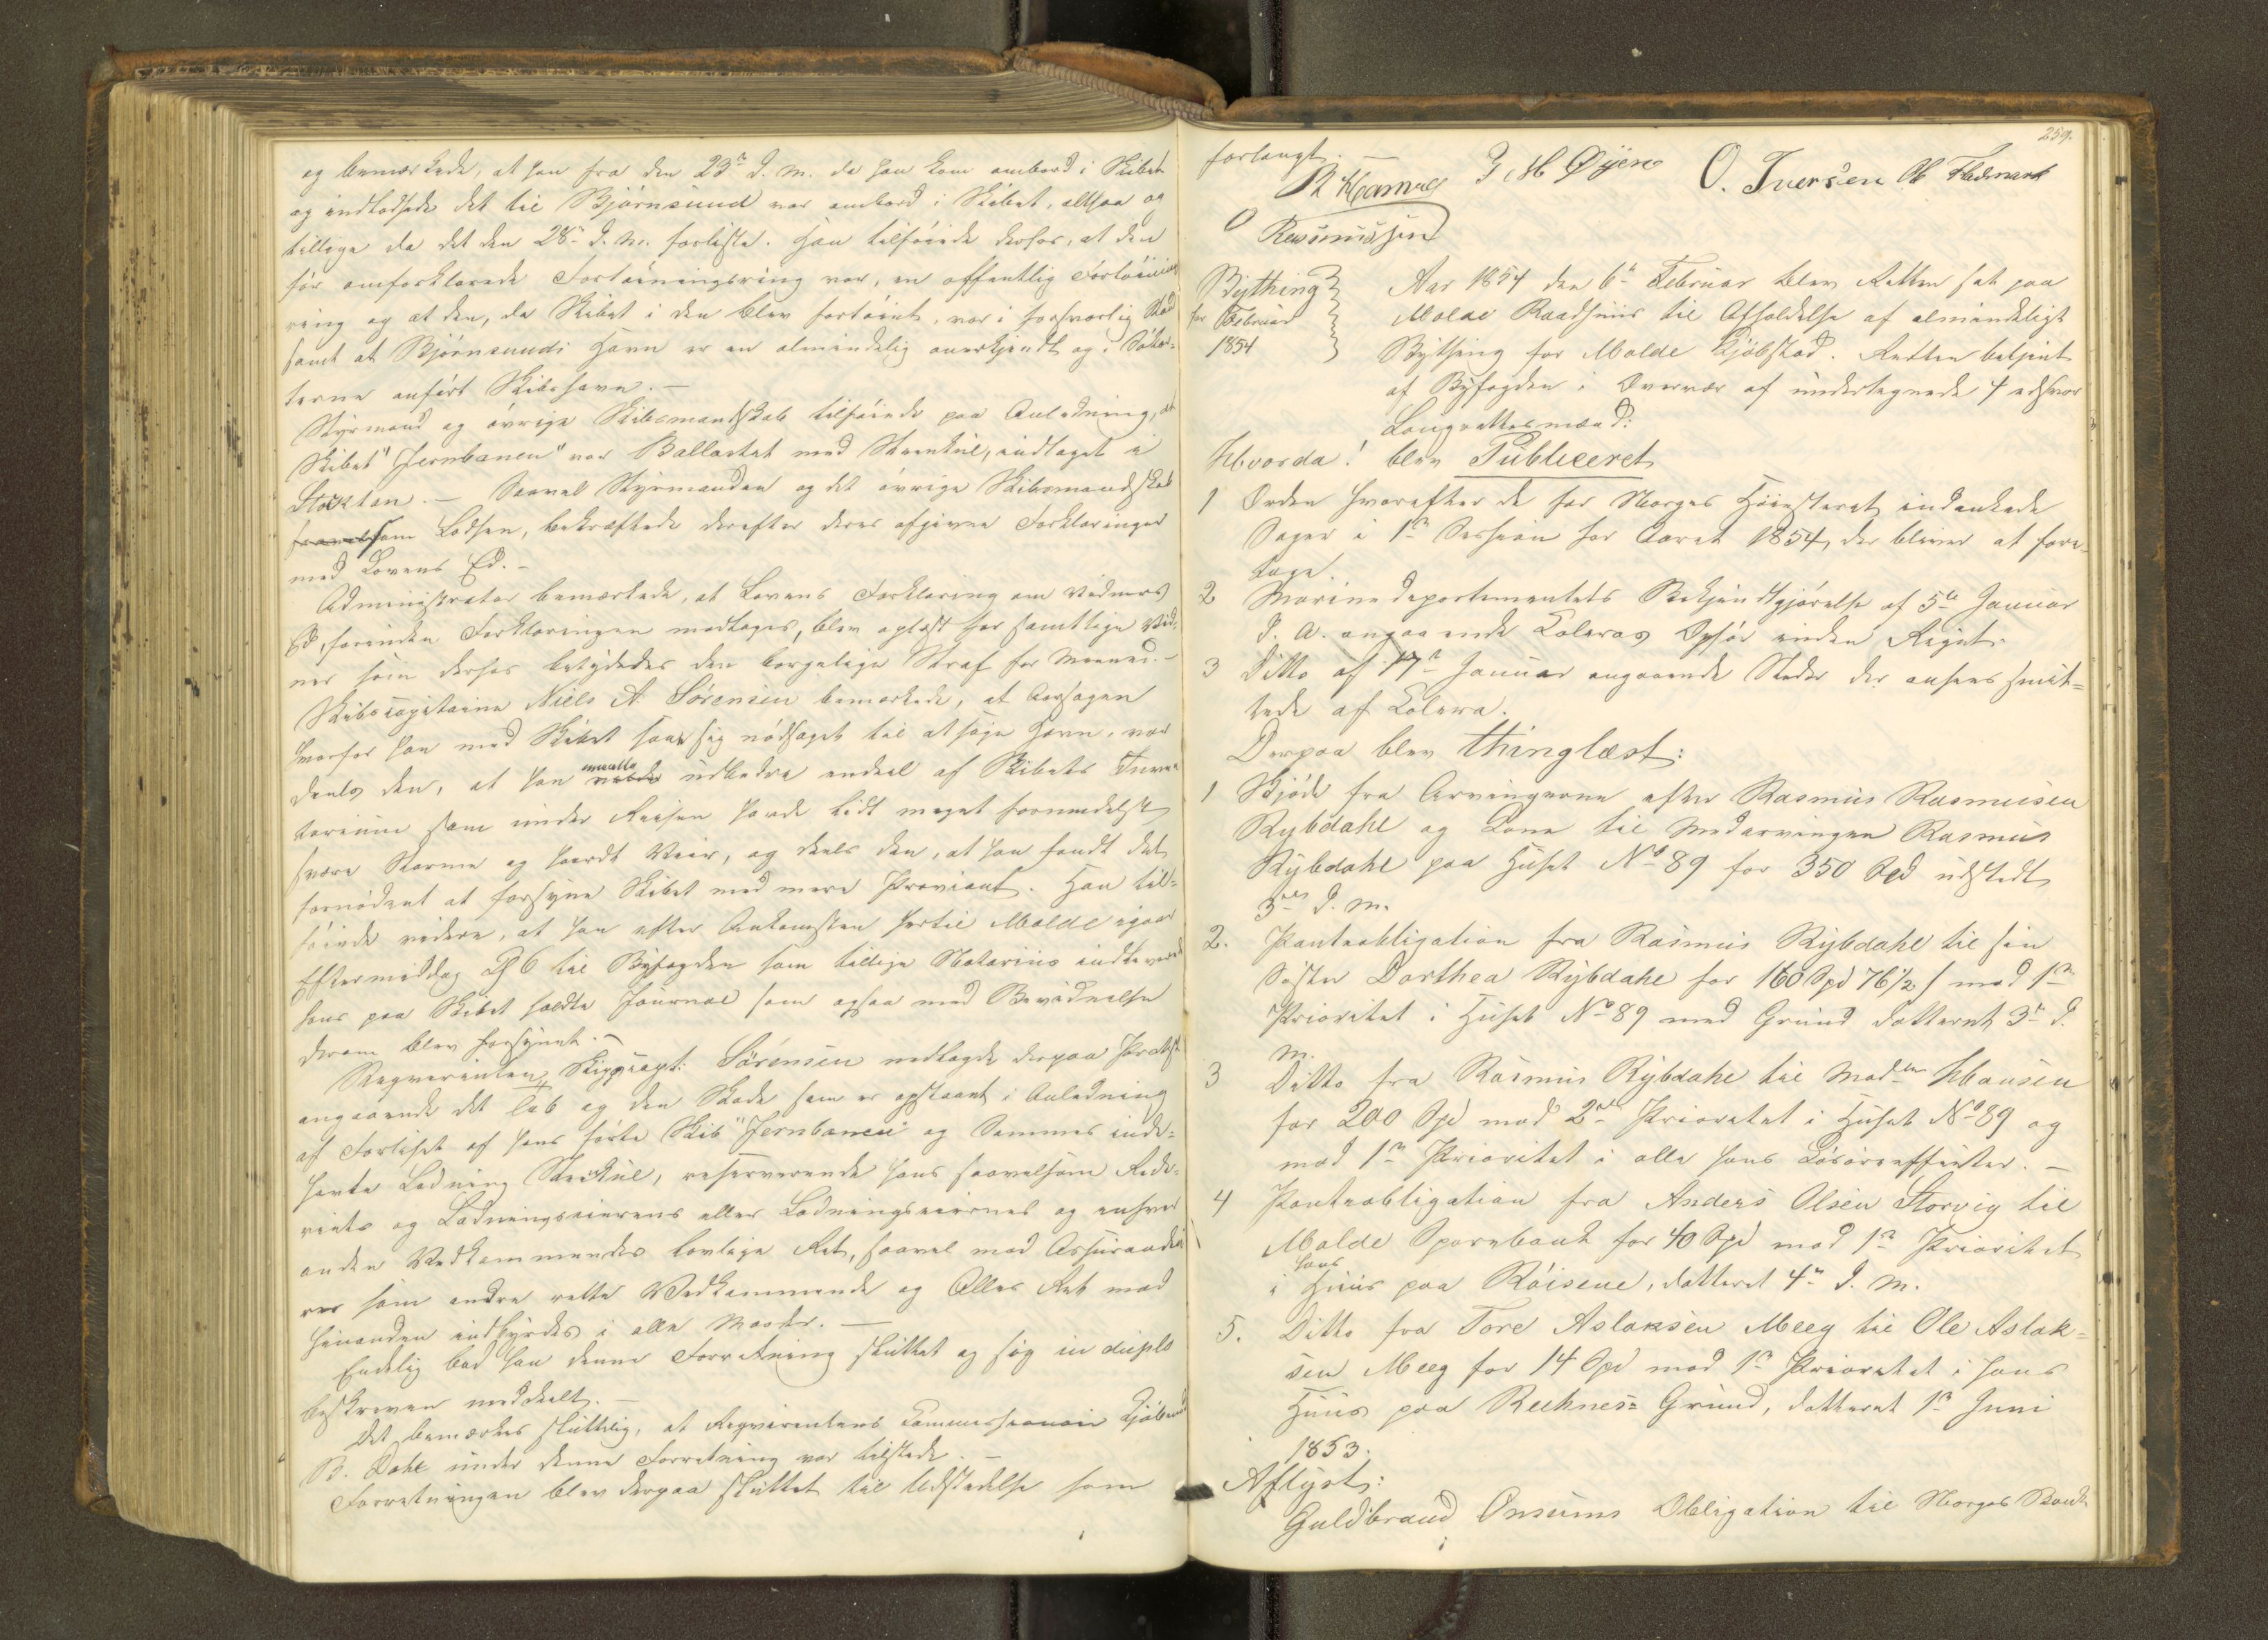 og bemærkede, at han fra den 23de d. M. da han kom ombord i Skibet
og indlodsede det til Bjørnsund var ombord i Skibet, altsaa og
tillige da det den 28de d. M. forliste. Han tilføiede derhos, at den
før omforklarede Fortøiningsring var, en offentlig Fortøinings
ring og at den, da Skibet i den blev fortøiet, var i forsvarlig Stand
samt at Bjørnsunds Havn er en almindelig anerkjendt og i Søkar-
terne anført Skibshavn. —
Styrmand og øvrige Skibsmandskab tilføiede paa Anledning, at
Skibet "Jernbanen" var Ballastet med Steenkul, indtaget i
Stockton. — Saavel Styrmanden og det øvrige Skibsmandskab
saavelsom Lodsen, bekræftede derefter deres afgivne Forklaringer
med Lovens Ed. —
Administrator bemærkede, at Lovens Forklaring om Vidners
Ed, forinden Forklaringen modtoges, blev oplæst for samtlige Vid-
ner som derhos betydedes den borgelige Straf for Meeneed. —
Skibscapitaine Niels A Sørensen bemærkede, at Aarsagen
hvorfor han med Skibet saae sig nødsaget til at søge Havn, var
deels den, at han maatte udbedre endeel af Skibets Inven
tarium som under Reisen havde lidt meget formedelst
svære Storme og haardt Veir, og deels den, at han fandt det
fornødent at forsyne Skibet med mere Proviant. Han til-
føiede videre, at han efter Ankomsten hertil Molde igaar
Eftermiddag Kl 6 til Byfogden som tillige Notarius indleverede
hans paa Skibet holdte Journal som ogsaa med Bevidnelse
derom blev forsynet. —
Reqvirenten, Skipscapt: Sørensen nedlagde derpaa Protest
angaaende det Tab og den Skade som er opstaaet i Anledning
af Forliset af hans førte Skib "Jernbanen" og Sammes inde-
havte Ladning Steenkul, reserverende hans saavelsom Rede-
riets og Ladningseierens eller Ladningseiernes og enhver
anden Vedkommendes lovlige Ret, saavel mod Assurandeu
rer som andre rette Vedkommende og Alles Ret mod
hinanden indbyrdes i alle Maader. —
Endelig bad han denne Forretning sluttet og sig in duplo
beskreven meddeelt. —
Det bemærkes sluttelig, at Reqvirentens Commissionair Kjøbmd
B. Dahl under denne Forretning var tilstede. —
Forretningen blev derpaa sluttet til Udstedelse som
259.
forlangt. —
O. Iversen
Rasmussen
Bything
for Februar
1854
Aar 1854 den 6te Februar blev Retten sat paa
Molde Raadhuus til Afholdelse af almindeligt
Bything for Molde Kjøbstad. Retten betjent
af Byfogden i Overvær af undertegnede 4 edsvor
Laugrettesmænd:
Hvorda! blev Publiceret
1 Orden hvorefter de for Norges Høiesteret indankede
Sager i 1ste Session for Aaret 1854, der bliver at fore-
tage.
2 Marinedepartementets Bekjendtgjørelse af 5te Januar
d. A. angaaende Coleras Ophør inden Riget.
3 Ditto af 17de Januar angaaende Steder der ansees smit-
tede af Colera.
Derpaa blev thinglæst:
1 Skjøde fra Arvingerne efter Rasmus Rasmusen
Rybdahl og Kone til Medarvingen Rasmus
Rybdahl paa Huset No 89 for 350 Spd udstedt
3die d. M.
2. Panteobligation fra Rasmus Rybdahl til sin
Søster Dorthea Rybdahl for 160 Spd 76½ s mod 1ste
Prioritet i Huset No 89 med Grund datteret 3die d.
M.
3 Ditto fra Rasmus Rybdahl til Madm Hansen
for 200 Spd mod 2den Prioritet i Huset No 89 og
mod 1ste Prioritet i alle hans Løsøreeffecter. —
4 Panteobligation fra Anders Olsen Storvig til
Molde Sparebank for 40 Spd mod 1ste Prioritet
i hans Huus paa Røisene, datteret 4de d. M.
5. Ditto fra Tore Aslaksen Meeg til Ole Aslak-
sen Meeg for 14 Spd mod 1ste Prioritet i hans
Huus paa Reknes- Grund, datteret 1ste Juni
1853.
Aflyst:
Guldbrand Onsums Obligation til Norges Bank